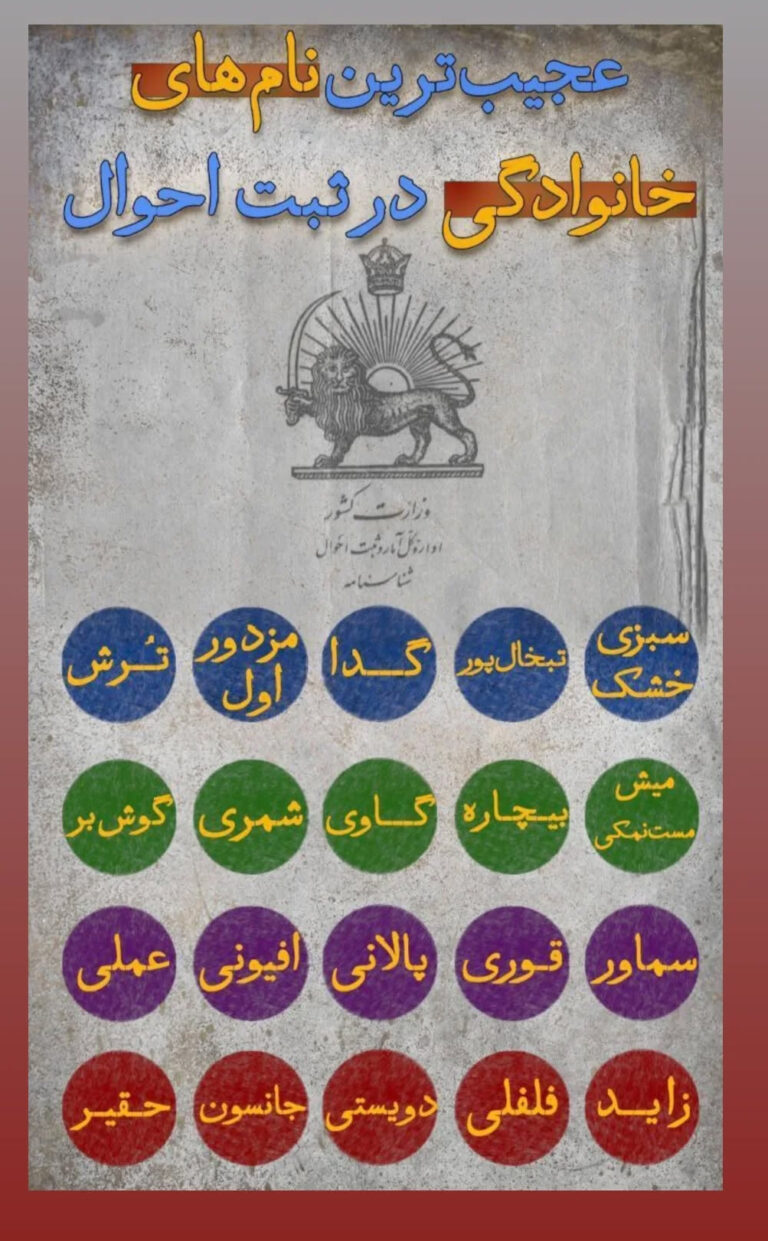 عجیب‌ترین نام‌های
خانوادگی در ثبت احوال
وزارت کشور
اداره کل آمار و ثبت احوال
شناسنامه
سبزی خشک
تبخال‌پور
گدا
مزدور اول
تُرش
میش مست نمکی
بیچاره
گاوی
شمری
گوش بر
سماور
قوری
پالانی
افیونی
عملی
زاید
فلفلی
دویستی
جانسون
حقیر